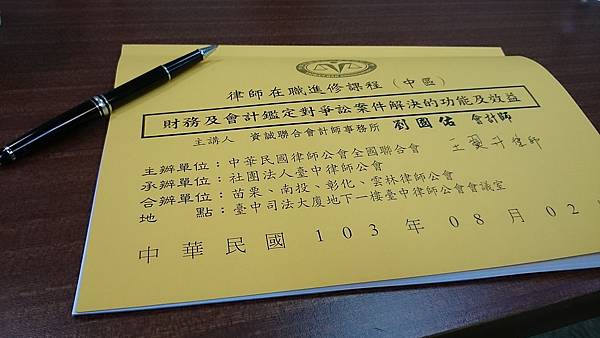 律師在職進修課程（中區）
財務及會計鑑定對爭訟案件解決的功能及效益
主講人 資誠聯合會計師事務所 劉國佑 會計師
主辦單位：中華民國律師公會全國聯合會
承辦單位：社團法人臺中律師公會
合辦單位：苗栗、南投、彰化、雲林律師公會
地點：臺中司法大廈地下一樓臺中律師公會會議室
中華民國 103 年 08 月 02